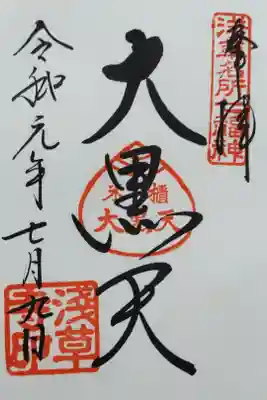 奉拝
浅草名所七福神
大黒天
米櫃
大黒天
令和元年七月九日
浅草
寺印